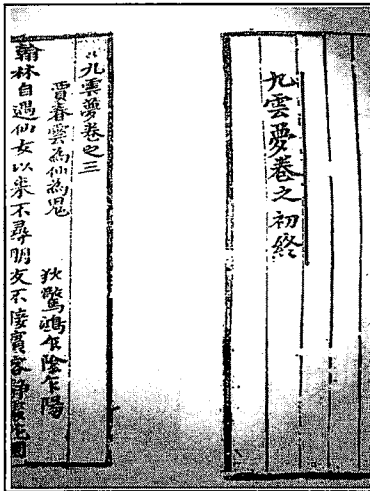 九雲夢卷之初終
九雲夢卷之三
賈春雲為仙為鬼 狄驚鴻乍陰乍陽
翰林自遇仙女以來不尋朋友不接賓客靜居花園